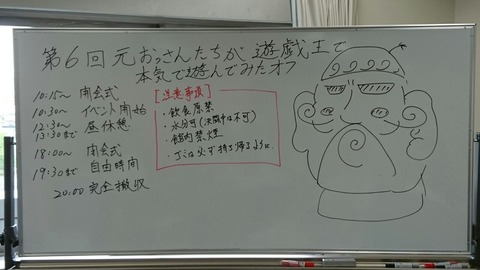 第6回元おっさんたちが遊戯王で
本気で遊んでみたオフ
10:15〜 開会式
10:30〜 イベント開始
12:30〜
13:30まで 昼休憩
18:00〜 閉会式
19:30まで 自由時間
20:00 完全撤収
[注意事項]
・飲食厳禁
・水分可(決闘中は不可)
・館内禁煙
・ゴミは必ず持ち帰るように